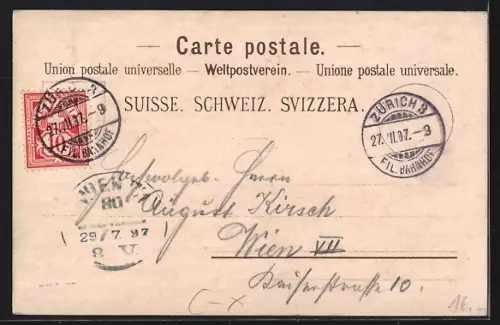 — Carte postale. —
Union postale universelle — Weltpostverein. — Unione postale universale.
SUISSE. SCHWEIZ. SVIZZERA.
ZÜRICH 3
27.VII.97.–9
FIL. BAHNHOF
ZÜRICH 3
27.VII.97.–9
FIL. BAHNHOF
10
Herrn
August Kirsch
Wien VII
Kaiserstrasse 10.
WIEN
80
29/7.97
8.V.
16.–